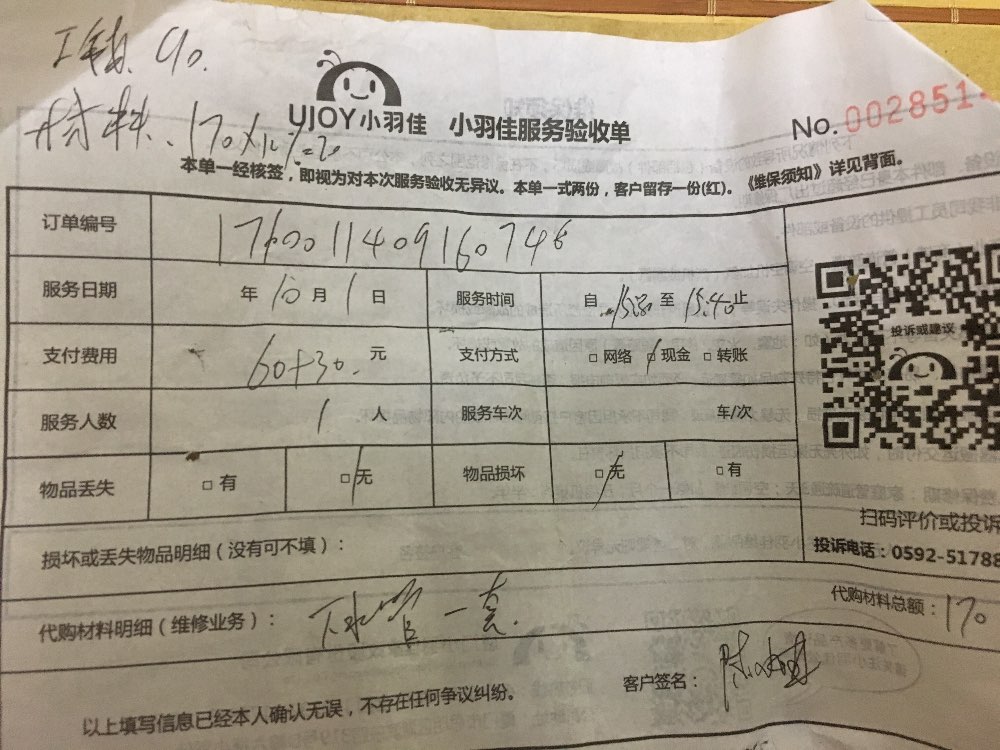 工钱.90.
材料.170×12%=20
UJOY小羽佳 小羽佳服务验收单
No.002851
本单一经核签，即视为对本次服务验收无异议。本单一式两份，客户留存一份(红)。《维保须知》详见背面。
订单编号 1760011409160746
服务日期 年 10 月 1 日 服务时间 自 至 15:40 止
支付费用 60+30. 元 支付方式 □ 网络 □ 现金 □ 转账
服务人数 1 人 服务车次 车/次
物品丢失 □ 有 □ 无 物品损坏 □ 无 □ 有
投诉或建议
扫码评价或投诉
投诉电话：0592-51788
损坏或丢失物品明细（没有可不填）：
代购材料明细（维修业务）： 下水管一套. 代购材料总额：170
客户签名：
以上填写信息已经本人确认无误，不存在任何争议纠纷。